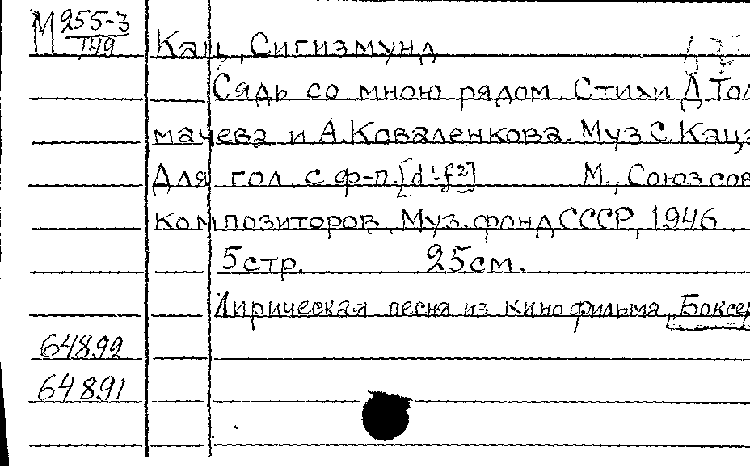 М 255-3
149
Кац, Сигизмунд
Сядь со мною рядом. Стихи Д. Тол
мачева и А. Коваленкова. Муз. С. Каца
Для гол. с ф-п. [d¹-f²] М., Союз сов
композиторов, Муз. фонд СССР, 1946
5 стр. 25 см.
Лирическая песня из кинофильма "Боксер
64892
64891